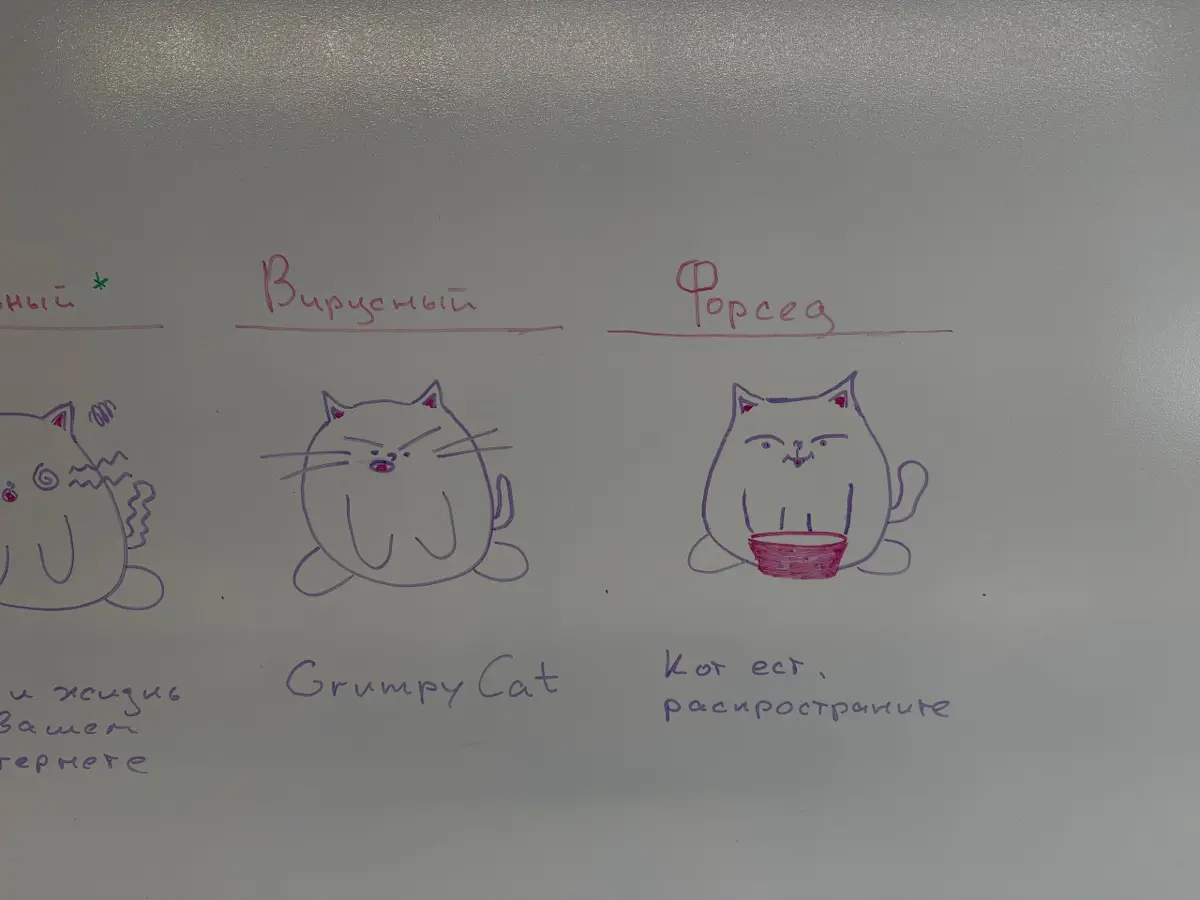 ьный *
Вирусный
Форсед
и жизнь
Вашем
тернете
Grumpy Cat
Кот ест.
распространите